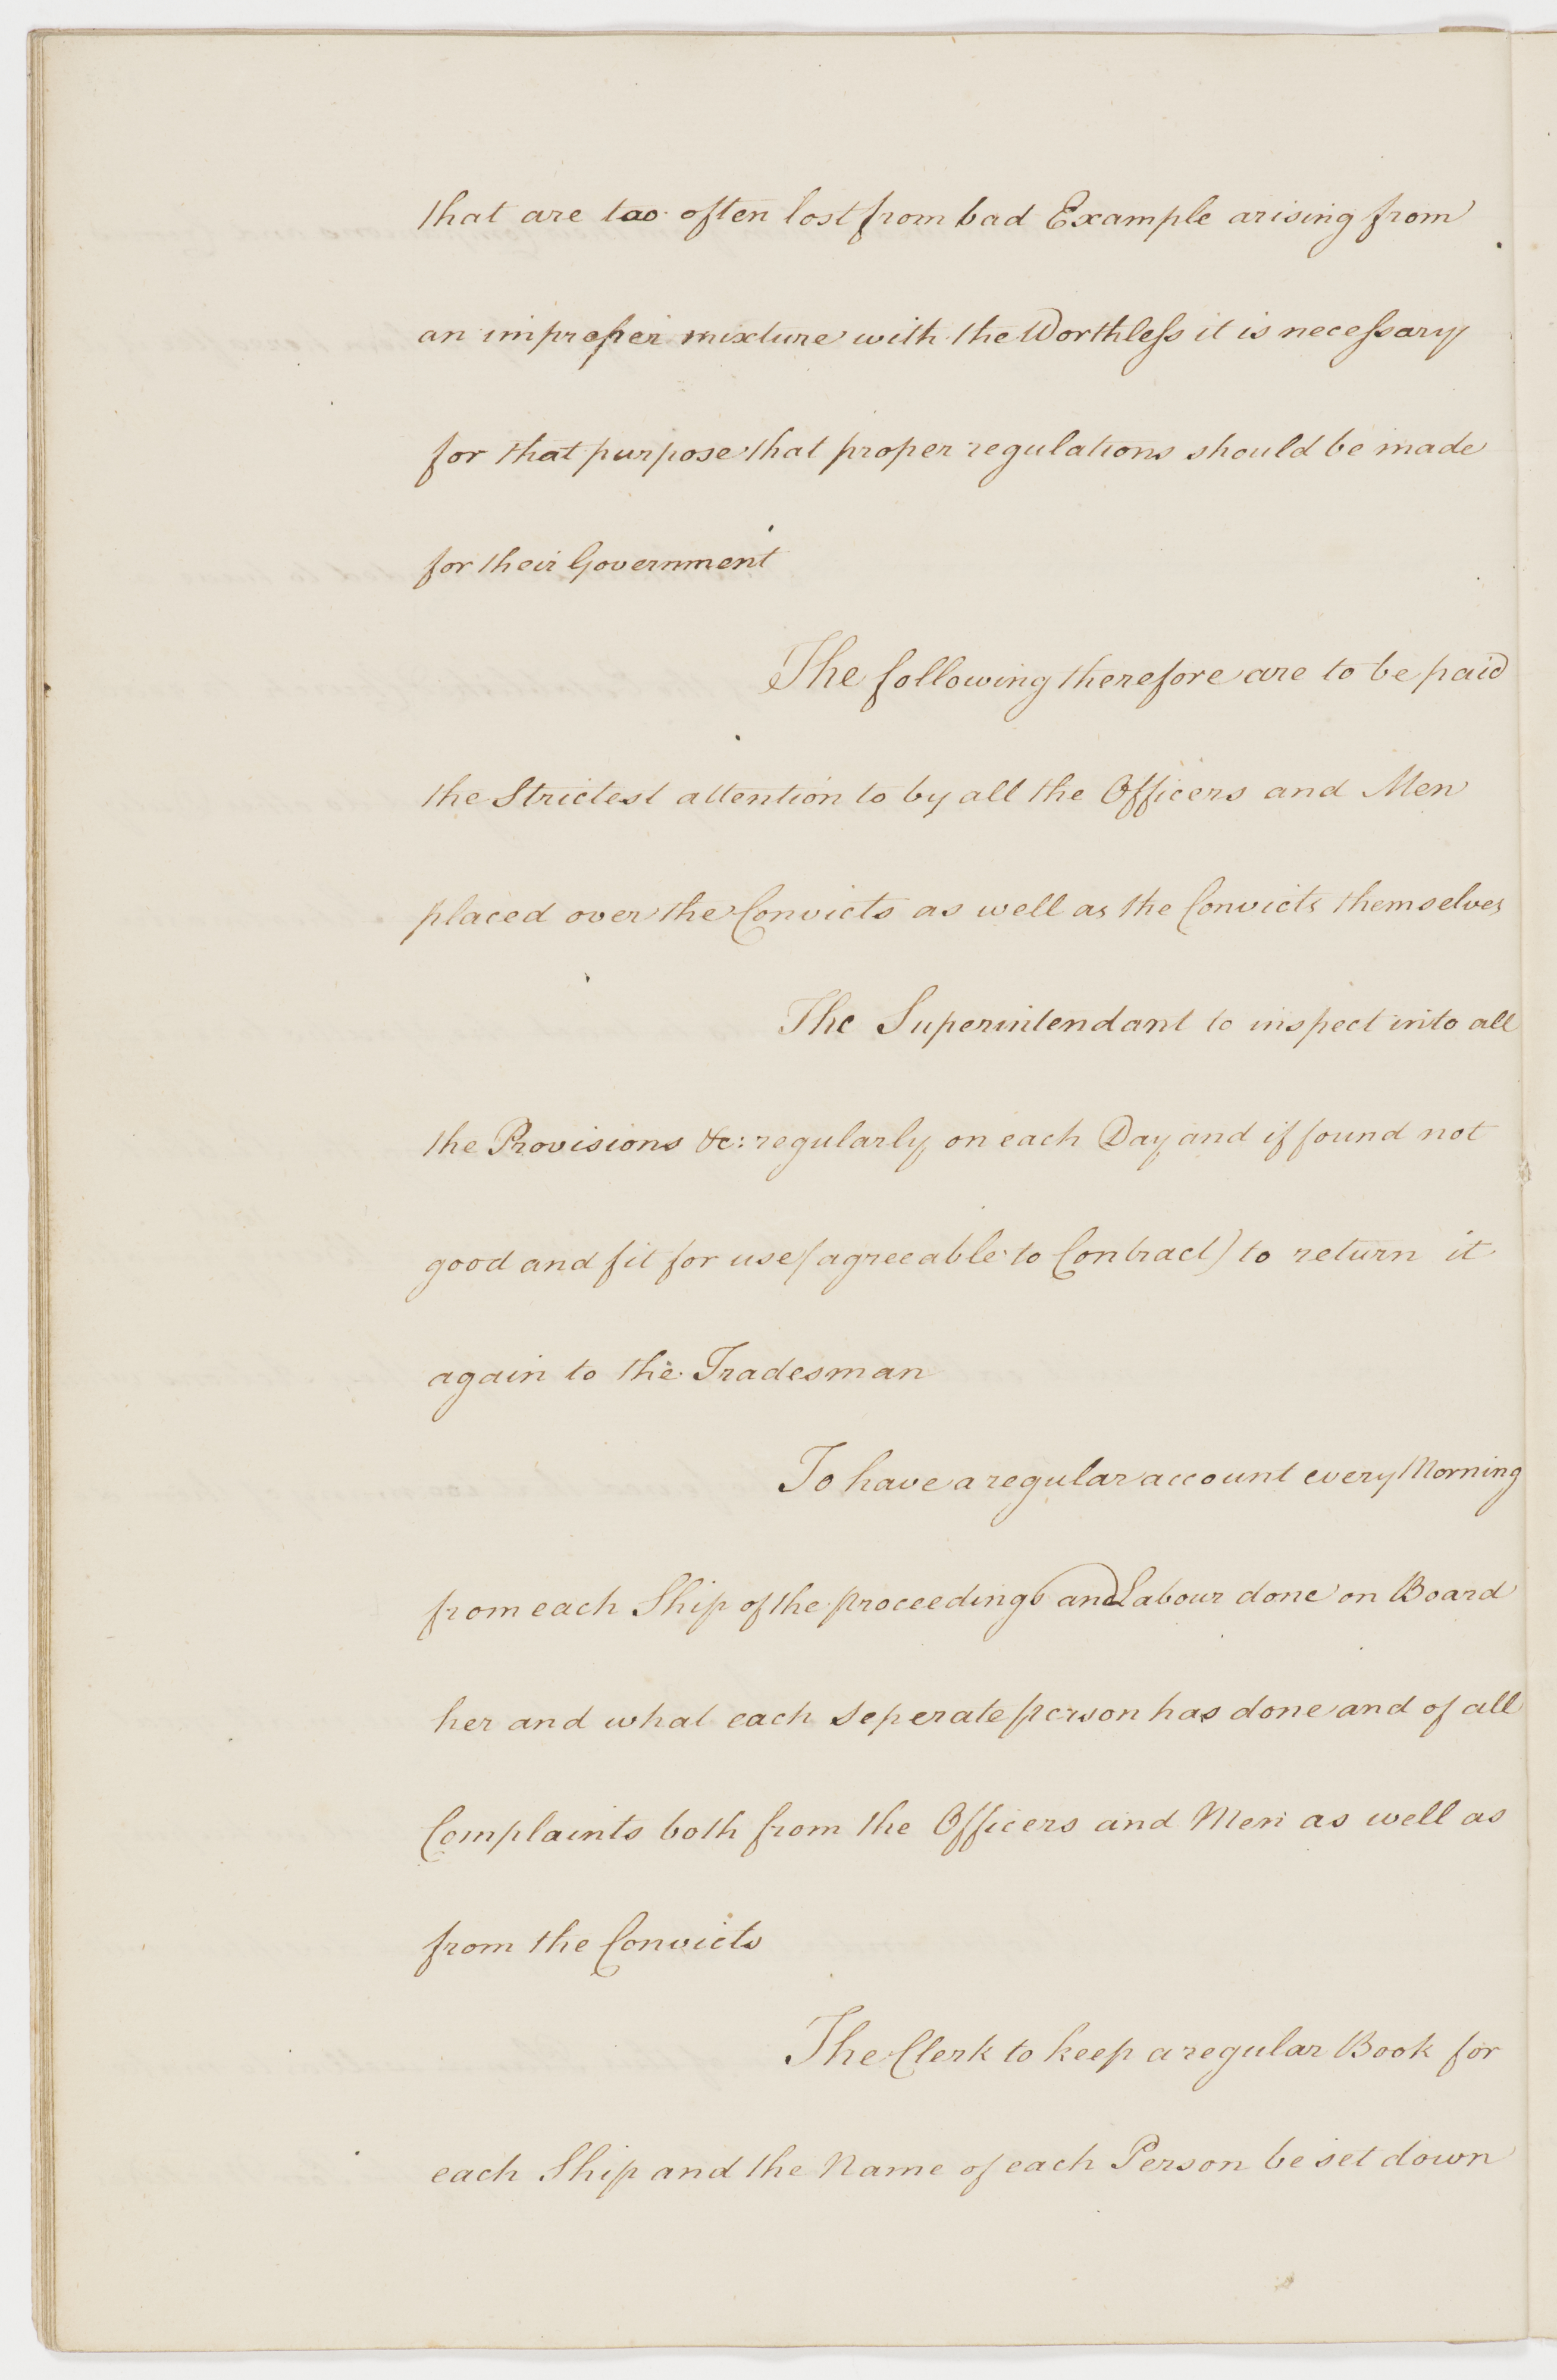 that are too often lost from bad Example arising from
an improper mixture with the Worthless it is necessary
for that purpose that proper regulations should be made
for their Government
The following therefore are to be paid
the Strictest attention to by all the Officers and Men
placed over the Convicts as well as the Convicts themselves
The Superintendant to inspect into all
the Provisions &c: regularly on each Day and if found not
good and fit for use (agreeable to Contract) to return it
again to the Tradesman
To have a regular account every Morning
from each Ship of the proceedings and Labour done on Board
her and what each seperate person has done and of all
Complaints both from the Officers and Men as well as
from the Convicts
The Clerk to keep a regular Book for
each Ship and the Name of each Person be set down